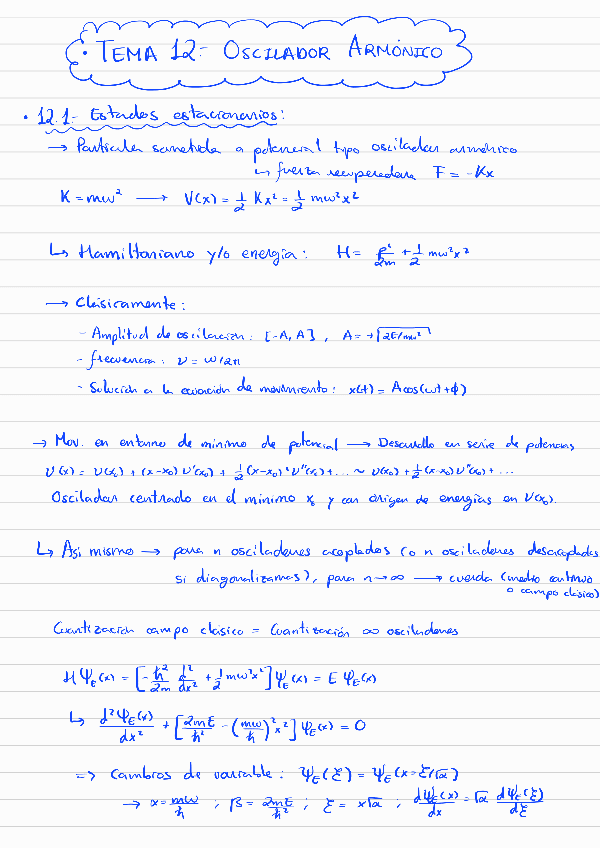 · TEMA 12.- OSCILADOR ARMÓNICO
· 12.1.- Estados estacionarios:
→ Partícula sometida a potencial tipo oscilador armónico
↳ fuerza recuperadora F = -Kx
K = mω² → V(x) = 1/2 Kx² = 1/2 mω²x²
↳ Hamiltoniano y/o energía: H = p²/2m + 1/2 mω²x²
→ Clásicamente:
- Amplitud de oscilación: [-A, A], A = +√(2E/mω²)
- frecuencia: ν = ω/2π
- Solución a la ecuación de movimiento: x(t) = A cos(ωt + ϕ)
→ Mov. en entorno de mínimo de potencial → Desarrollo en serie de potencias
V(x) = V(x₀) + (x-x₀) V'(x₀) + 1/2 (x-x₀)² V''(x₀) + ... ~ V(x₀) + 1/2 (x-x₀) V''(x₀) + ...
Oscilador centrado en el mínimo x₀ y con origen de energías en V(x₀).
↳ Asi mismo → para n osciladores acoplados (o n osciladores desacoplados
si diagonalizamos), para n→∞ → cuerda (medio continuo
o campo clásico)
Cuantización campo clásico = Cuantización ∞ osciladores
H Ψ_E(x) = [-ħ²/2m d²/dx² + 1/2 mω²x²] Ψ_E(x) = E Ψ_E(x)
↳ d²Ψ_E(x)/dx² + [2mE/ħ² - (mω/ħ)² x²] Ψ_E(x) = 0
⇒ Cambios de variable: Ψ_E(ξ) = Ψ_E(x = ξ/√α)
→ α = mω/ħ ; β = 2mE/ħ² ; ξ = x√α ; dΨ_E(x)/dx = √α dΨ_E(ξ)/dξ